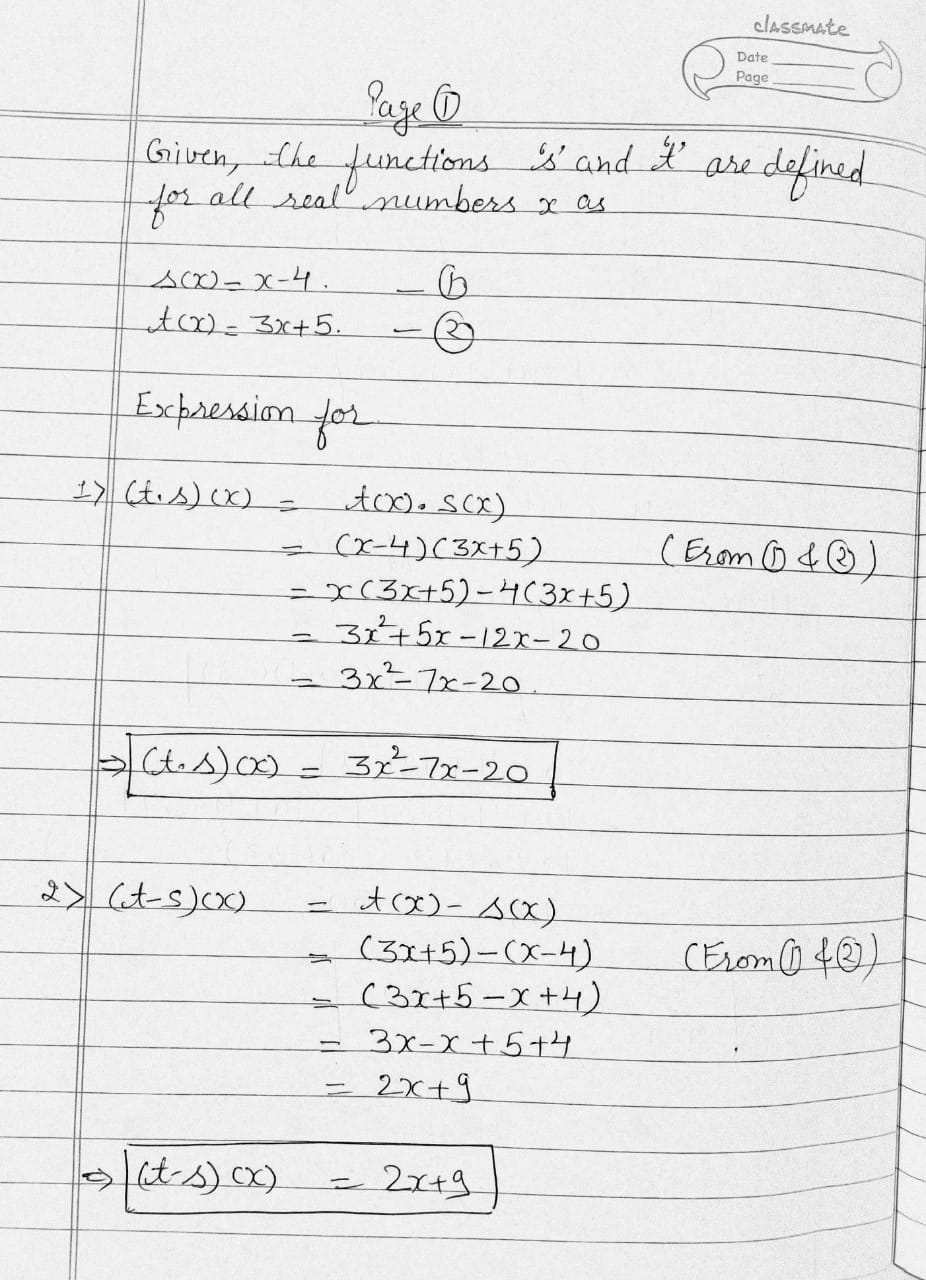 classmate
Date
Page
Page ①
Given, the functions 's' and 't' are defined
for all real numbers x as
s(x) = x-4. — ①
t(x) = 3x+5. — ②
Expression for
1> (t.s)(x) = t(x). s(x)
= (x-4)(3x+5) (From ① & ②)
= x(3x+5)-4(3x+5)
= 3x²+5x-12x-20
= 3x²-7x-20.
⇒ (t.s)(x) = 3x²-7x-20
2> (t-s)(x) = t(x)- s(x)
= (3x+5)-(x-4) (From ① & ②)
= (3x+5-x+4)
= 3x-x+5+4
= 2x+9
⇒ (t-s)(x) = 2x+9